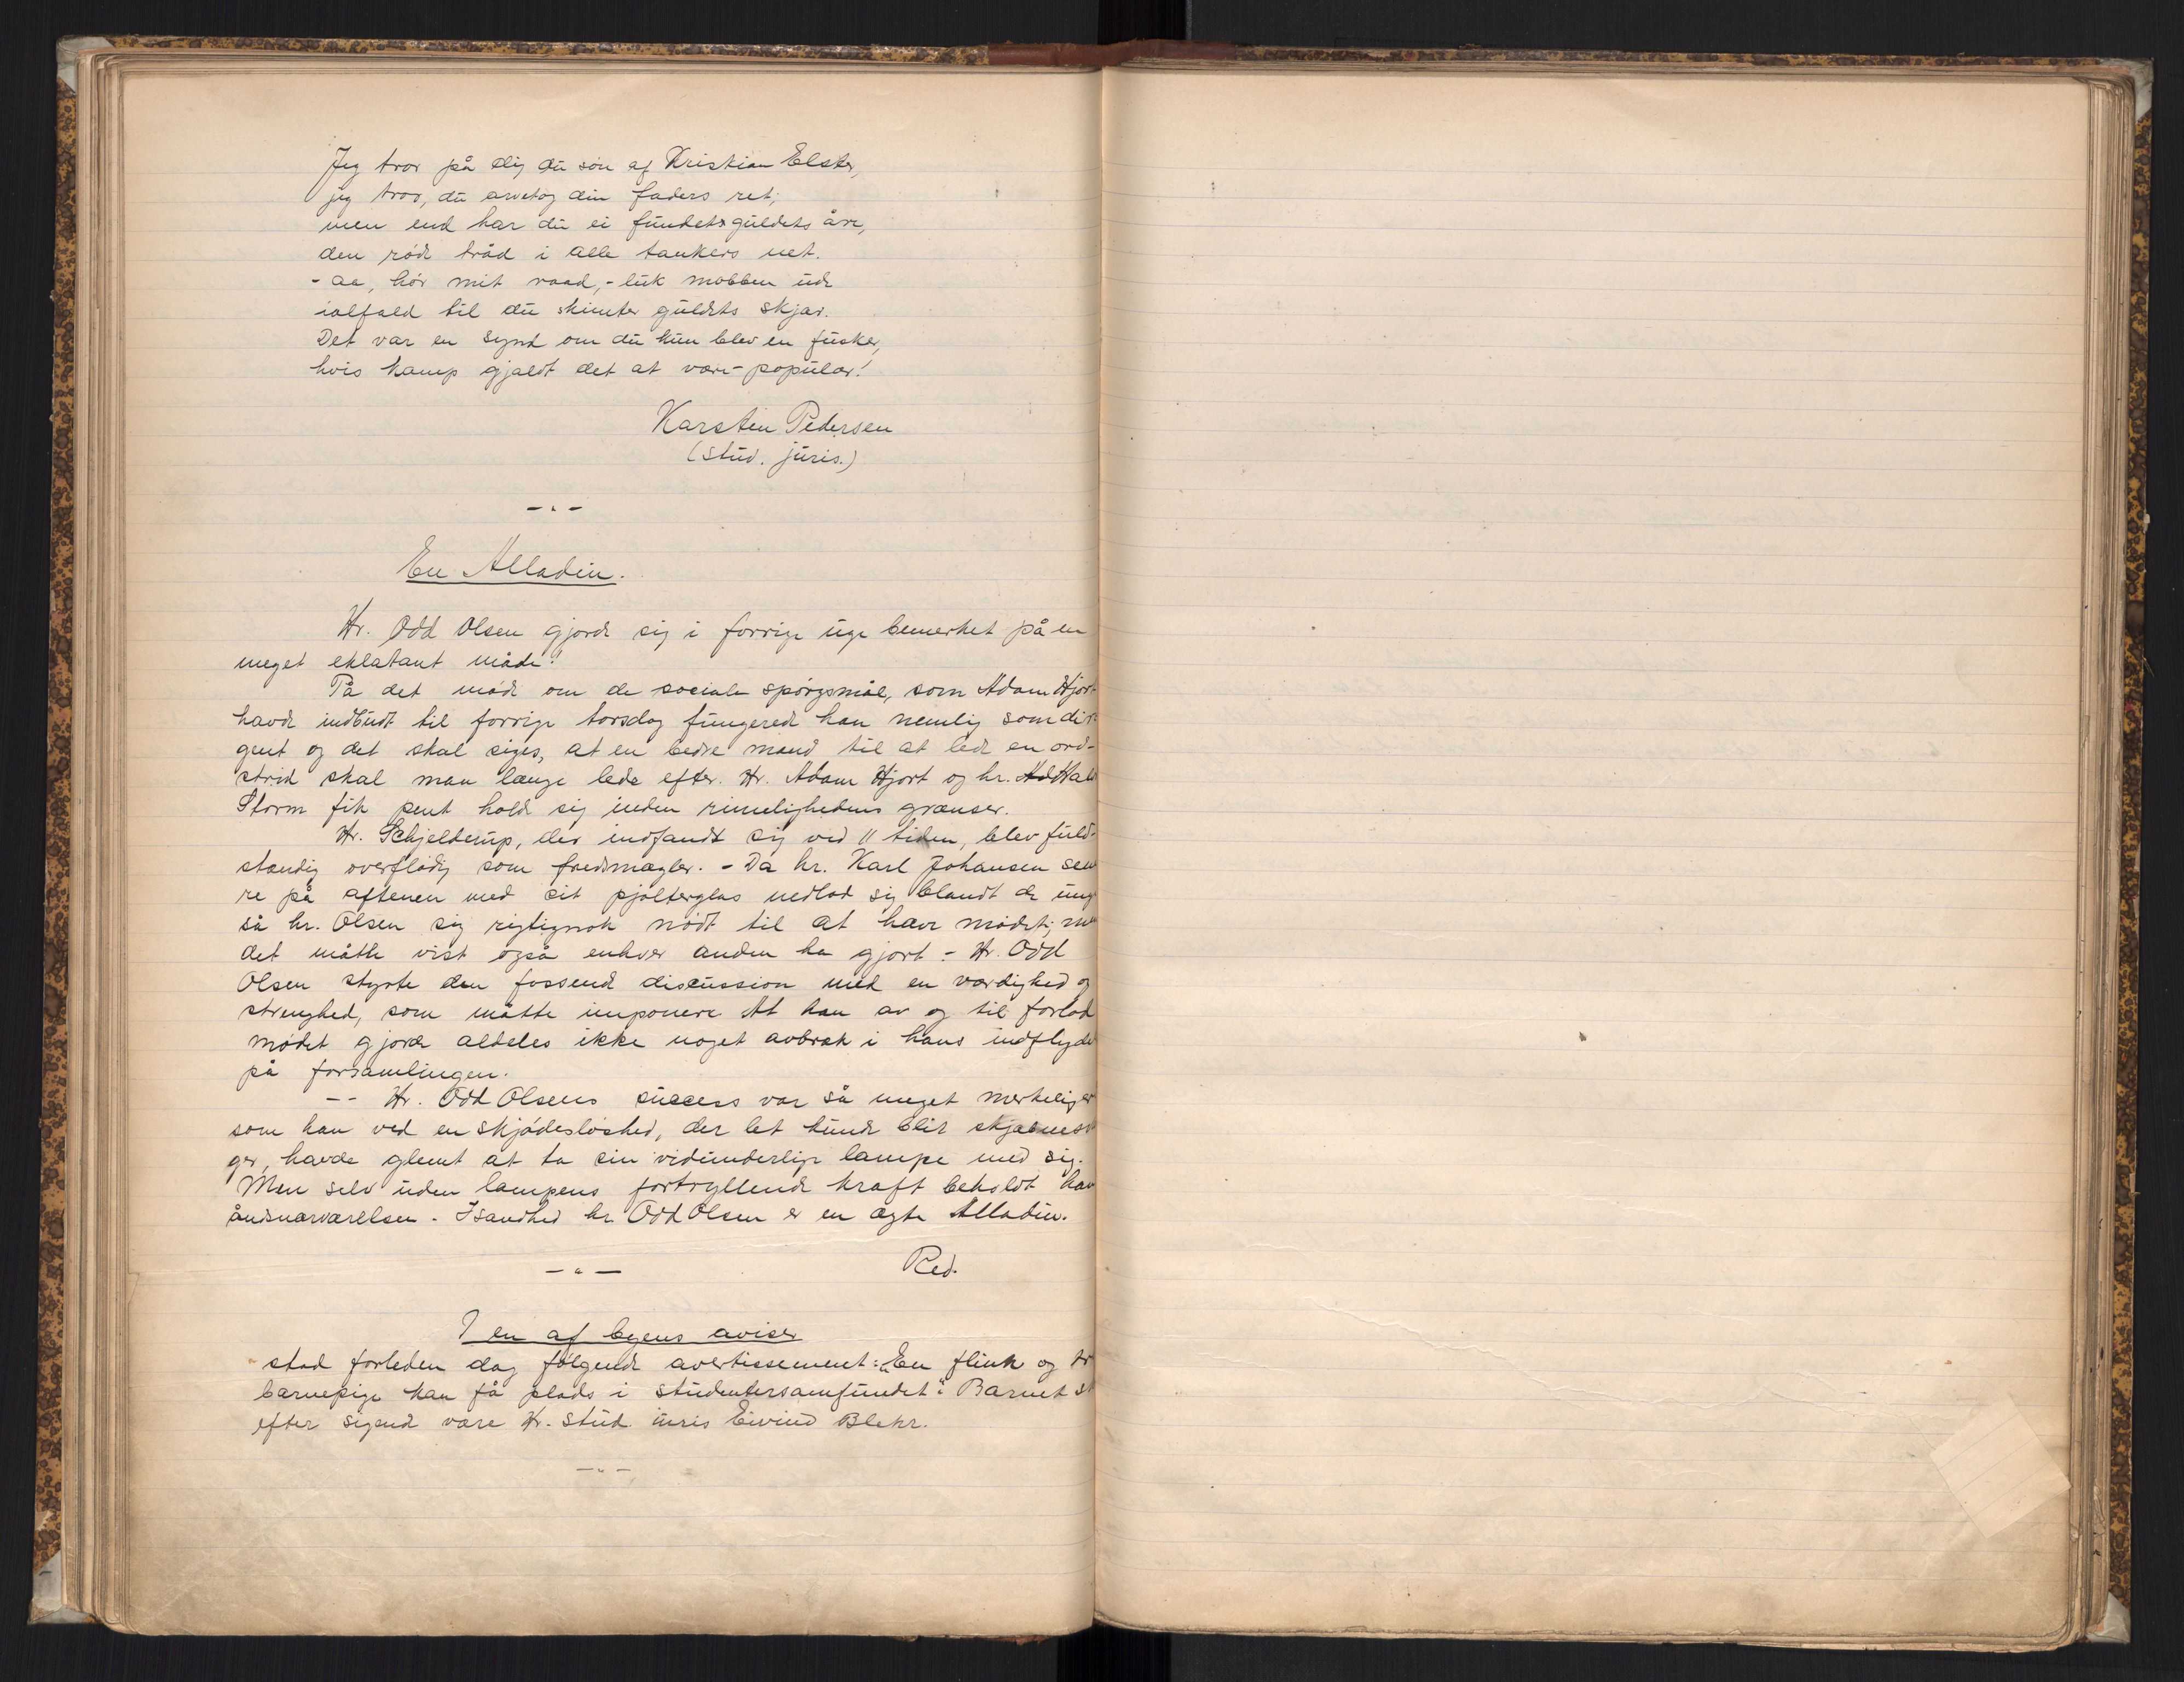 Jeg tror på dig du søn af Kristian Elster,
jeg tror, du arvetog din faders ret;
men end har du ei fundet guldets åre,
den røde tråd i alle tankers net.
- aa, hør mit raad, - luk mobben ude
ialfald til du skimter guldets skjær.
Det var en synd om du kun blev en fusker,
hvis kamp gjaldt det at være - populær!
Karsten Pedersen
(stud. juris.)
- " -
En Alladin.
Hr. Odd Olsen gjorde sig i forrige uge bemerket på en
meget eklatant måde!
På det møde om de sociale spørgsmål, som Adam Hjort
havde indbudt til forrige torsdag fungerede han nemlig som diri
gent og det skal siges, at en bedre mand til at lede en ord-
strid skal man længe lede efter. Hr. Adam Hjort og hr.
Storm fik pent holde sig inden rimelighedens grænser.
Hr. Schjelderup, der indfandt sig ved 11 tiden, blev fuld-
stændig overflødig som fredsmægler. - Da hr. Karl Johansen sene
re på aftenen med sit pjolterglas nedlod sig blandt de unge
så hr. Olsen sig rigtignok nødt til at hæve mødet; men
det måtte vist også enhver anden ha gjort. - Hr. Odd
Olsen styrte den fossende discussion med en værdighed og
strenghed, som måtte imponere. At han av og til forlod
mødet gjorde aldeles ikke noget avbræk i hans indflydelse
på forsamlingen.
-- Hr. Odd Olsens success var så meget merkeligere
som han ved en skjødesløshed, der let kunde blit skjæbnesv
ger, havde glemt at ta sin vidunderlige lampe med sig.
Men selv uden lampens fortryllende kraft beholdt han
åndsnærværelsen. - Isandhed hr. Odd Olsen er en ægte Alladin.
- " - Red.
I en af byens aviser
stod forleden dag følgende avertissement: "En flink og tr
barnepige kan få plads i studentersamfundet". Barnet sk
efter sigende være Hr. stud. iuris Eivind Blehr.
- " -